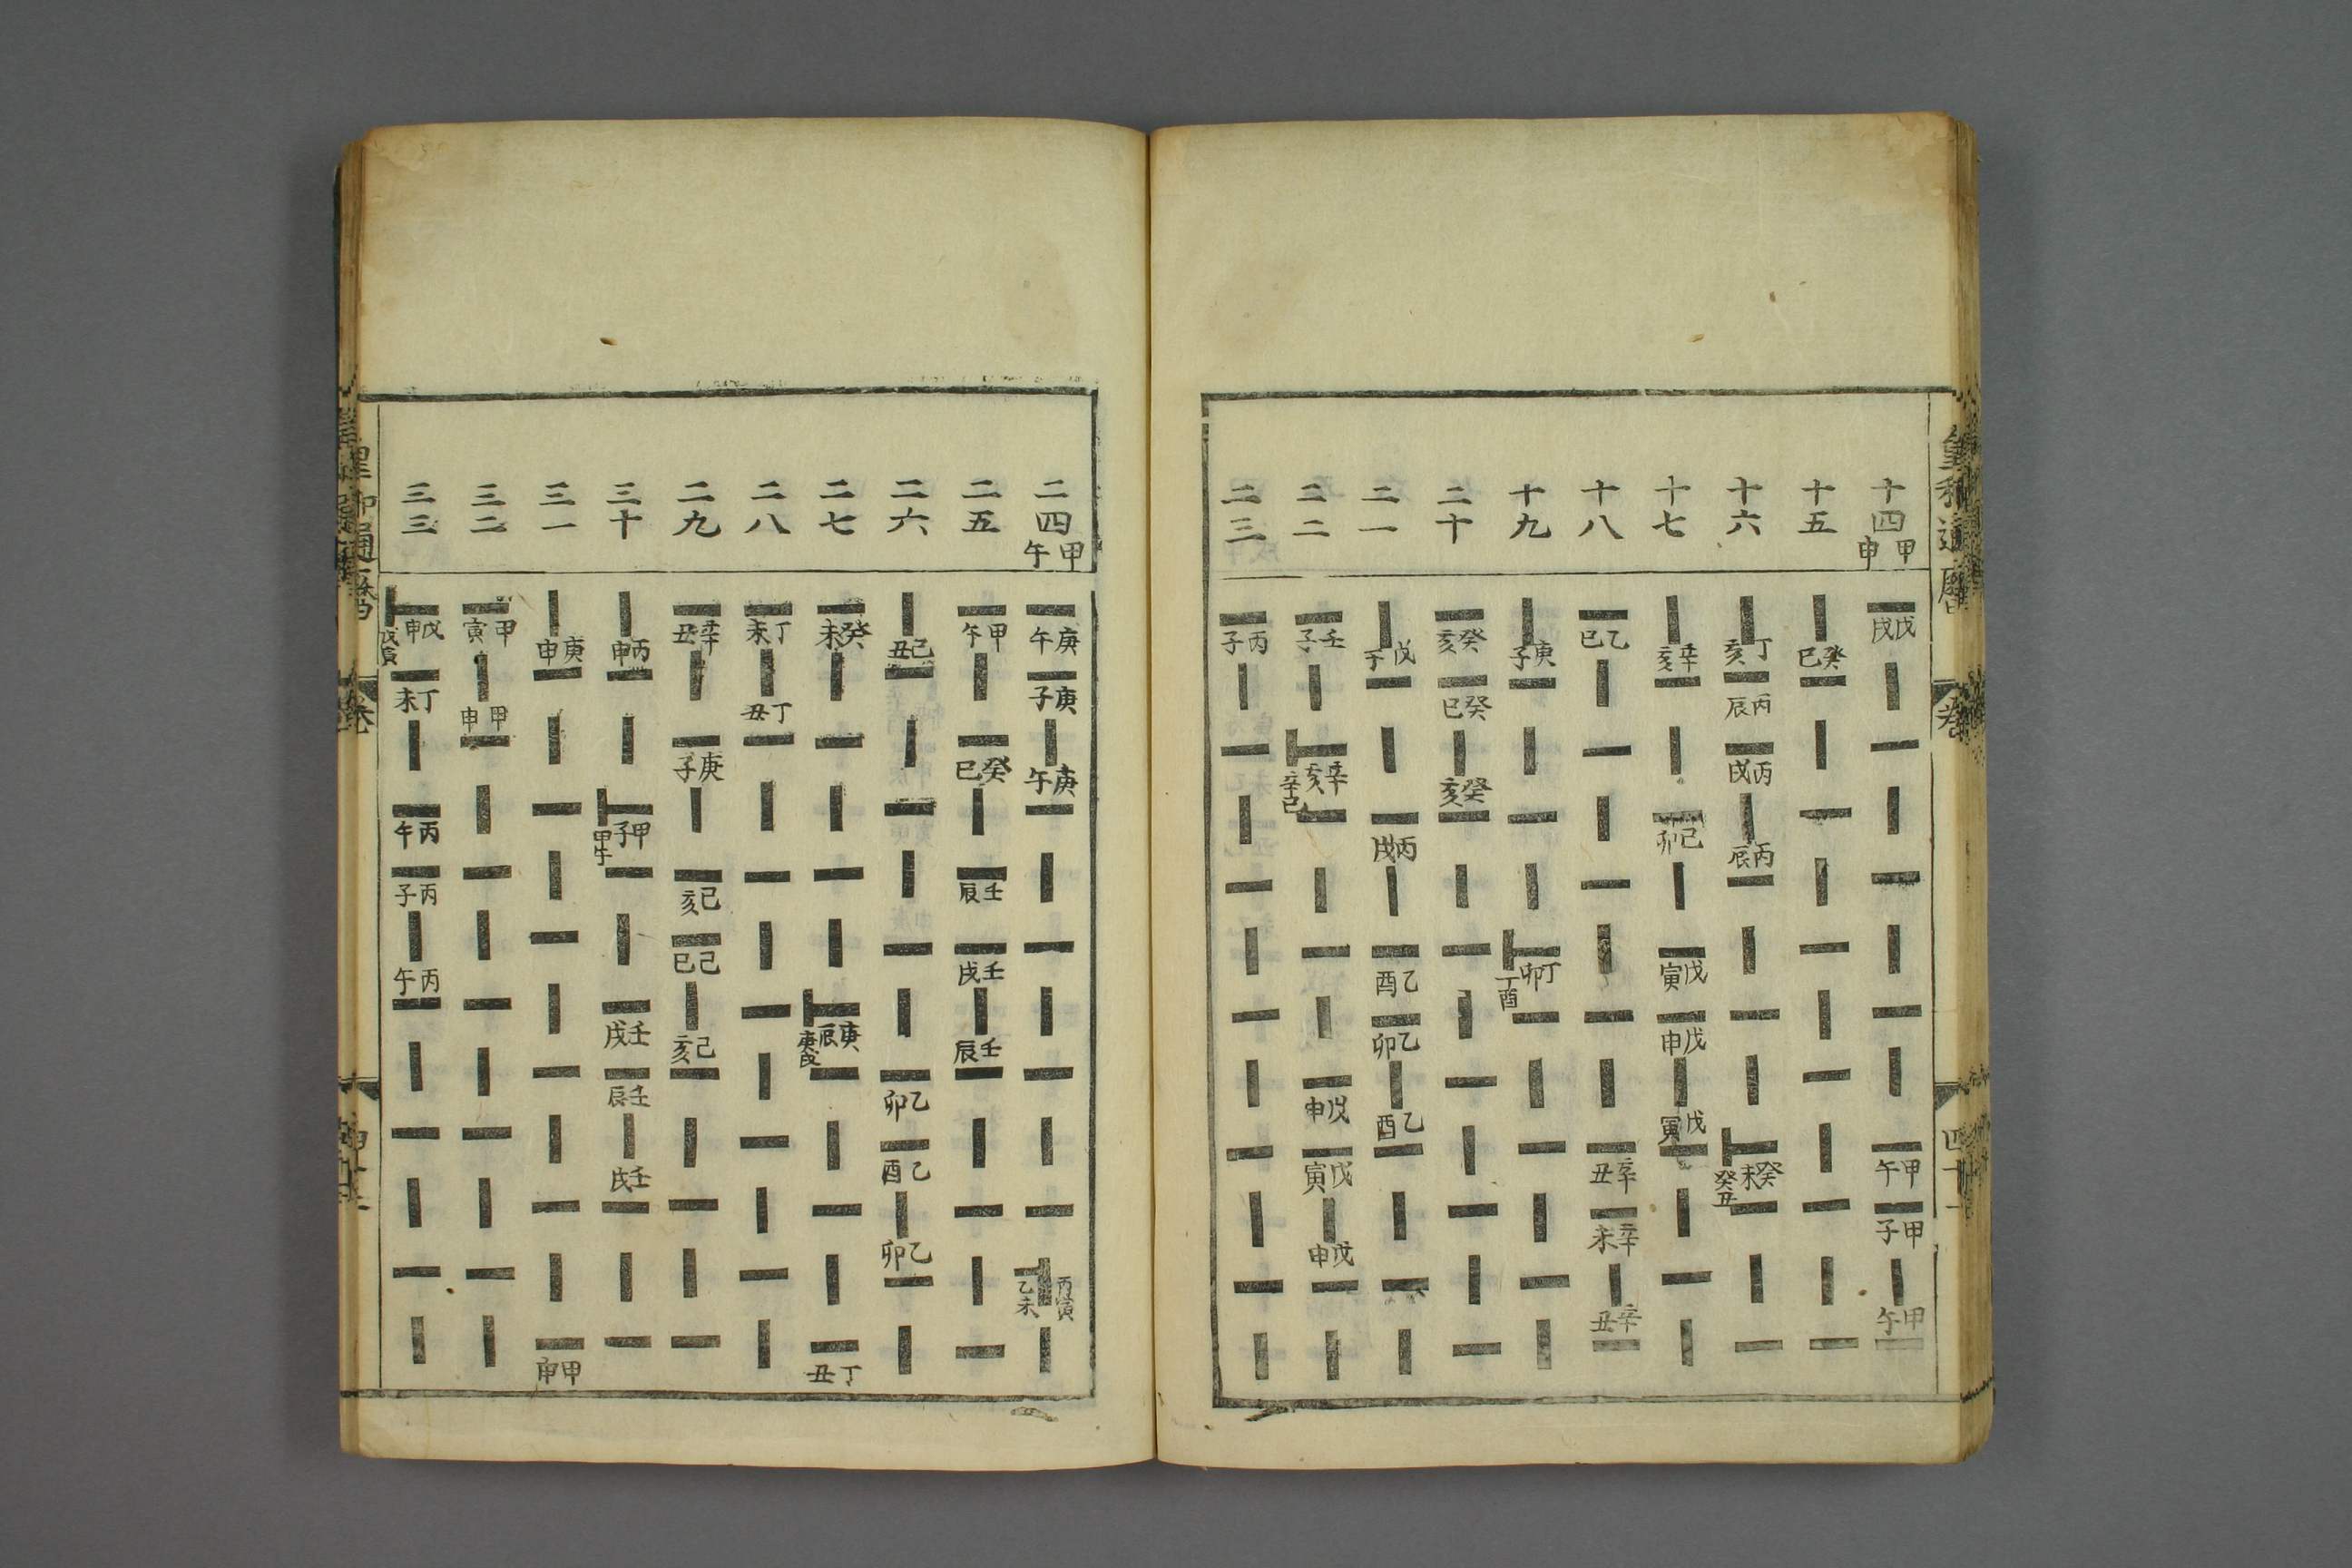 皇和通曆 卷
十四 甲申 戊戌 甲午 甲子 甲午
十五 癸巳
十六 丁亥 丙辰 丙戌 丙辰 癸未 癸丑
十七 辛亥 己卯 戊寅 戊申 戊寅
十八 乙巳 辛丑 辛未 辛丑
十九 庚子 丁卯 丁酉
二十 癸亥 癸巳 癸亥
二一 戊午 丙戌 乙酉 乙卯 乙酉
二二 壬子 辛亥 辛巳 戊申 戊寅 戊申
二三 丙子
二四 甲午 庚午 庚子 庚午 丙寅 乙未
二五 甲午 癸巳 壬辰 壬戌 壬辰
二六 己丑 乙卯 乙酉 乙卯
二七 癸未 庚辰 庚戌 丁丑
二八 丁未 丁丑
二九 辛丑 庚子 己亥 己巳 己亥
三十 丙申 甲子 甲午 壬戌 壬辰 壬戌
三一 庚申 甲申
三二 甲寅 甲申
三三 戊申 戊寅 丁未 丙午 丙子 丙午